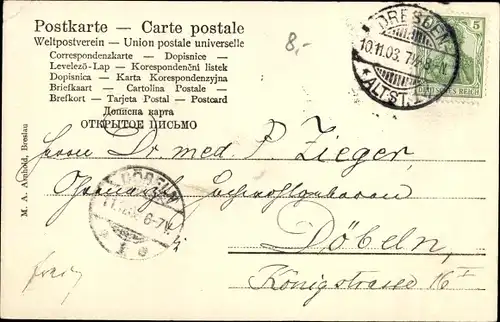 Postkarte — Carte postale
Weltpostverein — Union postale universelle
Correspondenzkarte — Dopisnice —
Levelező-Lap — Korespondenční lístek
Dopisnica — Karta Korespondenzyjna
Briefkaart — Cartolina Postale —
Brefkort — Tarjeta Postal — Postcard
Дописна карта
ОТКРЫТОЕ ПИСЬМО
8,-
DRESDEN
10.11.03. 7-8N.
*ALTST.
5
DEUTSCHES REICH
Herrn Dr. med. P. Zieger,
Hochwohlgeboren
DÖBELN
6-7V.
Döbeln,
Königstrasse 16 I
M. A. Arnhold, Breslau